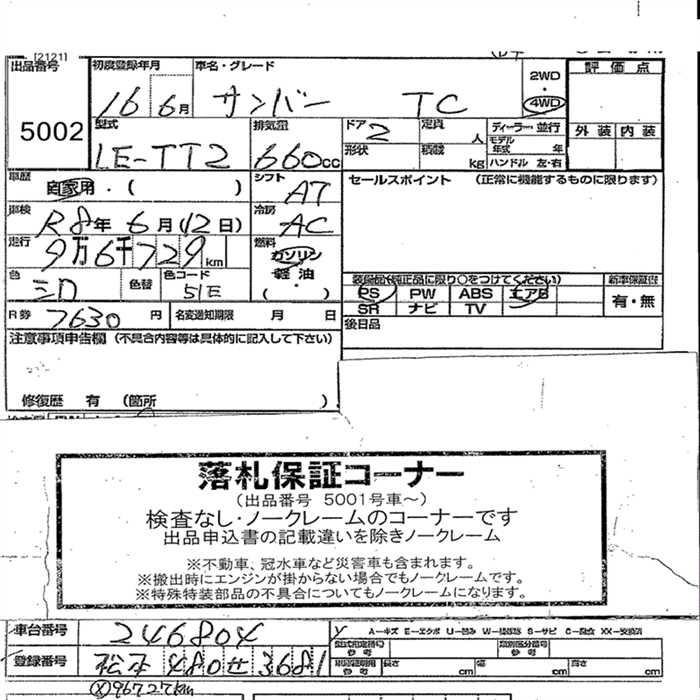 [2121]
出品番号 初度登録年月 車名・グレード 2WD ・ 4WD 評価点
5002 16 6月 サンバー TC
型式 排気量 ドア 定員 ディーラー・並行 外装 内装
LE-TT2 660cc 2 人 モデル年式 年
形状 積載 kg ハンドル 左・右
車歴 自家用・( ) シフト AT セールスポイント (正常に機能するものに限ります)
車検 R8年 6月(12日) 冷房 AC
走行 9万6千729km 燃料 ガソリン・軽油 ( )
色 シロ 色替 色コード 51E 装備品(純正品に限り○をつけてください) 新車保証書
PS PW ABS エアB 有・無
SR ナビ TV
R券 7630円 名変通知期限 月 日 後日品
注意事項申告欄 (不具合内容等は具体的に記入して下さい)
修復歴 有 (箇所 )
落札保証コーナー
(出品番号 5001号車～)
検査なし・ノークレームのコーナーです
出品申込書の記載違いを除きノークレーム
※不動車、冠水車など災害車も含まれます。
※搬出時にエンジンが掛からない場合でもノークレームです。
※特殊特装部品の不具合についてもノークレームになります。
車台番号 246804 A-キズ E-エクボ U-凹み W-補修跡 S-サビ C-腐食 XX-交換済
型式指定番号 参考 類別区分番号 参考
登録番号 松本 480 せ 3681 車両証明用 参考 長さ cm 幅 cm 高さ cm
(X)96727km